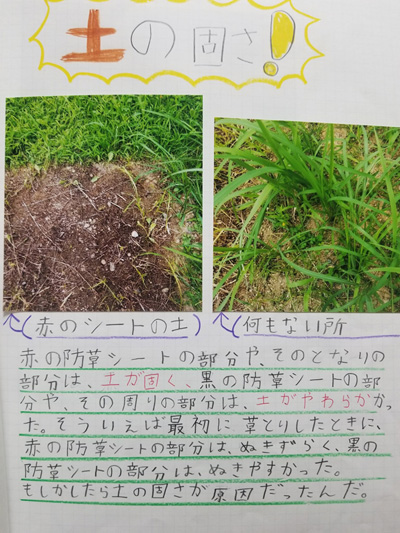 土の固さ!
(赤のシートの土)
(何もない所
赤の防草シートの部分や、そのとなりの
部分は、土が固く、黒の防草シートの部
分や、その周りの部分は、土がやわらかかっ
た。そういえば最初に草とりしたときに、
赤の防草シートの部分は、ぬきずらく、黒の
防草シートの部分は、ぬきやすかった。
もしかしたら土の固さが原因だったんだ。